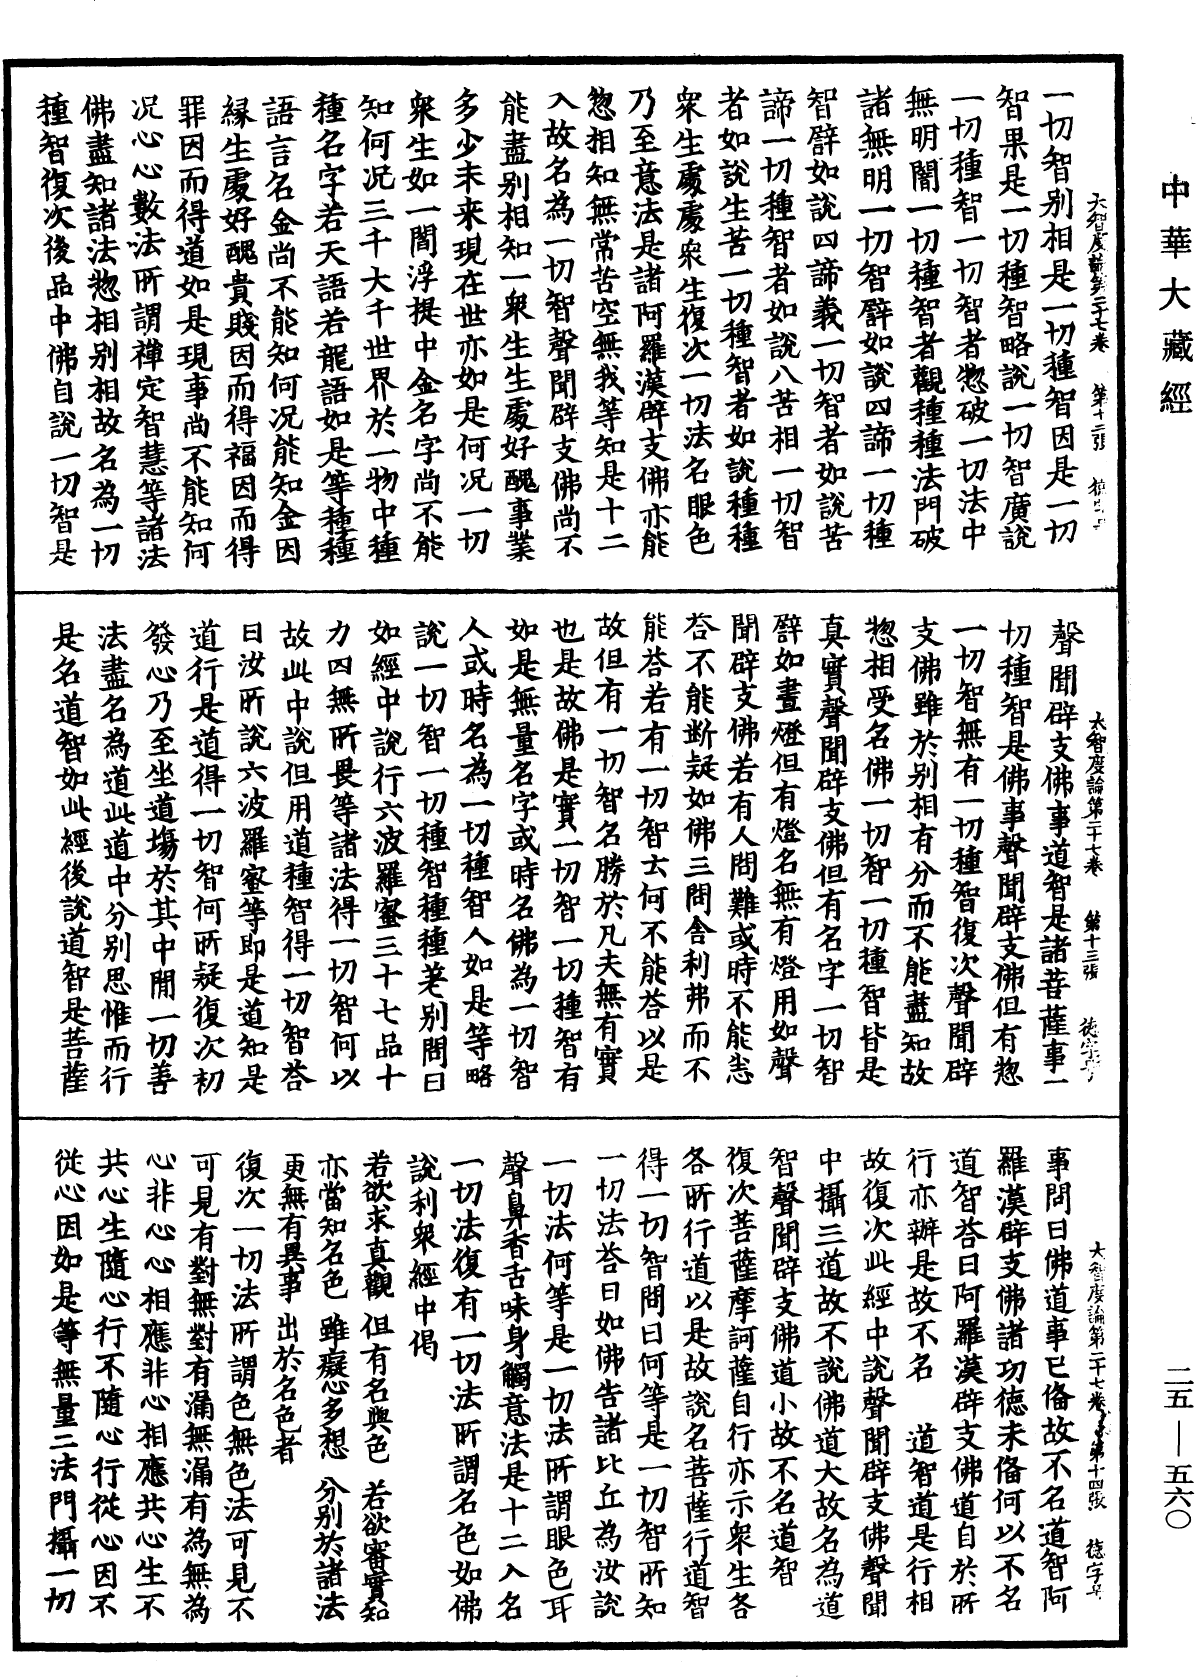 中華大藏經
大智度論第二十七卷 第十二張 德字号
一切智別相是一切種智因是一切
智果是一切種智略說一切智廣說
一切種智一切智者惣破一切法中
無明闇一切種智者觀種種法門破
諸無明一切智譬如說四諦一切種
智譬如說四諦義一切智者如說苦
諦一切種智者如說八苦相一切智
者如說生苦一切種智者如說種種
衆生處處衆生復次一切法名眼色
乃至意法是諸阿羅漢辟支佛亦能
惣相知無常苦空無我等知是十二
入故名為一切智聲聞辟支佛尚不
能盡別相知一衆生生處好醜事業
多少未來現在世亦如是何況一切
衆生如一閻浮提中金名字尚不能
知何況三千大千世界於一物中種
種名字若天語若龍語如是等種種
語言名金尚不能知何況能知金因
緣生處好醜貴賤因而得福因而得
罪因而得道如是現事尚不能知何
況心心數法所謂禪定智慧等諸法
佛盡知諸法惣相別相故名為一切
種智復次後品中佛自說一切智是
大智度論第二十七卷 第十三張 德字号
聲聞辟支佛事道智是諸菩薩事一
切種智是佛事聲聞辟支佛但有惣
一切智無有一切種智復次聲聞辟
支佛雖於別相有分而不能盡知故
惣相受名佛一切智一切種智皆是
真實聲聞辟支佛但有名字一切智
譬如晝燈但有燈名無有燈用如聲
聞辟支佛若有人問難或時不能悉
荅不能斷疑如佛三問舍利弗而不
能荅若有一切智云何不能荅以是
故但有一切智名勝於凡夫無有實
也是故佛是實一切智一切種智有
如是無量名字或時名佛為一切智
人或時名為一切種智人如是等略
說一切智一切種智種種差別問曰
如經中說行六波羅蜜三十七品十
力四無所畏等諸法得一切智何以
故此中說但用道種智得一切智荅
曰汝所說六波羅蜜等即是道知是
道行是道得一切智何所疑復次初
發心乃至坐道場於其中間一切善
法盡名為道此道中分別思惟而行
是名道智如此經後說道智是菩薩
大智度論第二十七卷 第十四張 德字号
事問曰佛道事已俻故不名道智阿
羅漢辟支佛諸功德未俻何以不名
道智荅曰阿羅漢辟支佛道自於所
行亦辦是故不名 道智道是行相
故復次此經中說聲聞辟支佛聲聞
中攝三道故不說佛道大故名為道
智聲聞辟支佛道小故不名道智
復次菩薩摩訶薩自行亦示衆生各
各所行道以是故說名菩薩行道智
得一切智問曰何等是一切智所知
一切法荅曰如佛告諸比丘為汝說
一切法何等是一切法所謂眼色耳
聲鼻香舌味身觸意法是十二入名
一切法復有一切法所謂名色如佛
說利衆經中偈
若欲求真觀 但有名與色 若欲審實知
亦當知名色 雖癡心多想 分別於諸法
更無有異事 出於名色者
復次一切法所謂色無色法可見不
可見有對無對有漏無漏有為無為
心非心心相應非心相應共心生不
共心生隨心行不隨心行從心因不
從心因如是等無量二法門攝一切
二五—五六〇